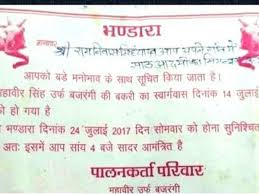 भण्डारा
मान्यवर
श्री
आपको बड़े मनोभाव के साथ सूचित किया जाता है।
महावीर सिंह उर्फ बजरंगी की बकरी का स्वर्गवास दिनांक 14 जुलाई
को हो गया है
भण्डारा दिनांक 24 जुलाई 2017 दिन सोमवार को होना सुनिश्चित
अतः इसमें आप सांय 4 बजे सादर आमंत्रित है
पालनकर्ता परिवार
महावीर उर्फ बजरंगी